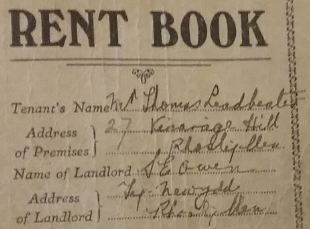 RENT BOOK
Tenant's Name Mr Thomas Leadbeater
Address of Premises 27 Hill
Name of Landlord S E Owen
Address of Landlord Ty Newydd